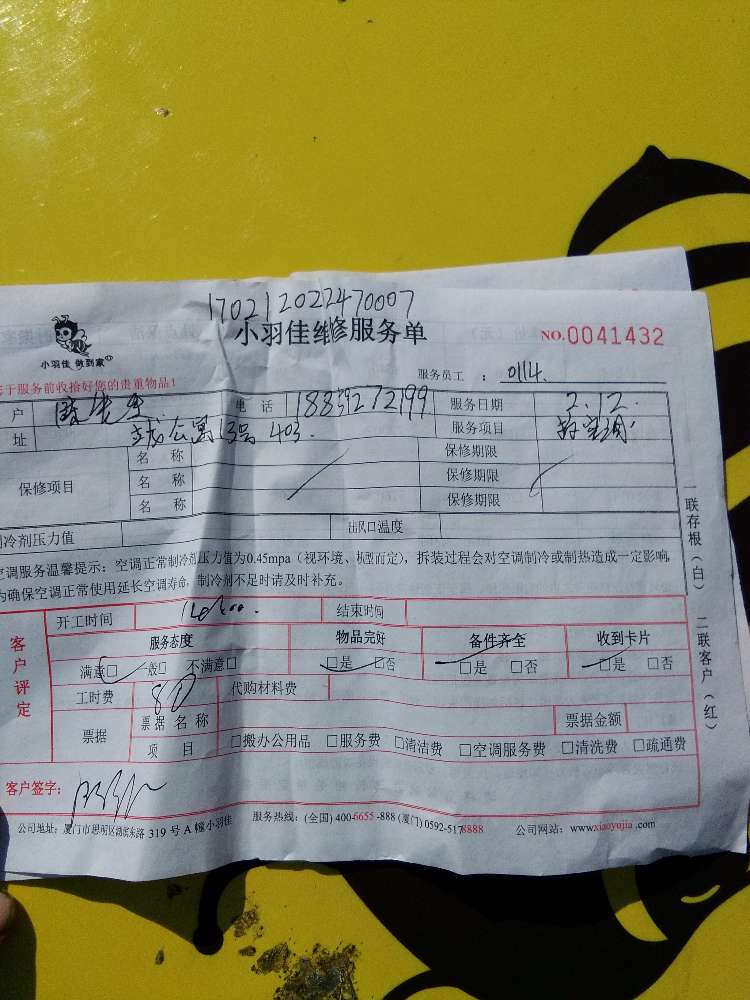 170212022470007
小羽佳维修服务单 NO.0041432
小羽佳 做到家
服务员工 : 0114.
于服务前收拾好您的贵重物品!
户 电话 服务日期 2.12.
址 公寓13号403. 服务项目
保修项目 名称 保修期限
名称 保修期限
名称 保修期限
冷剂压力值 出风口温度
空调服务温馨提示:空调正常制冷剂压力值为0.45mpa(视环境、机型而定),拆装过程会对空调制冷或制热造成一定影响,
为确保空调正常使用延长空调寿命,制冷剂不足时请及时补充。
客户评定 开工时间 结束时间
服务态度 物品完好 备件齐全 收到卡片
满意□ 一般□ 不满意□ □是 □否 □是 □否 □是 □否
工时费 80 代购材料费
票据 票据名称 票据金额
项目 □搬办公用品 □服务费 □清洁费 □空调服务费 □清洗费 □疏通费
客户签字:
公司地址:厦门市思明区湖滨东路 319 号 A 幢小羽佳 服务热线:(全国) 400-6655-888 (厦门) 0592-5178888 公司网站:www.xiaoyujia.com
一联存根(白) 二联客户(红)